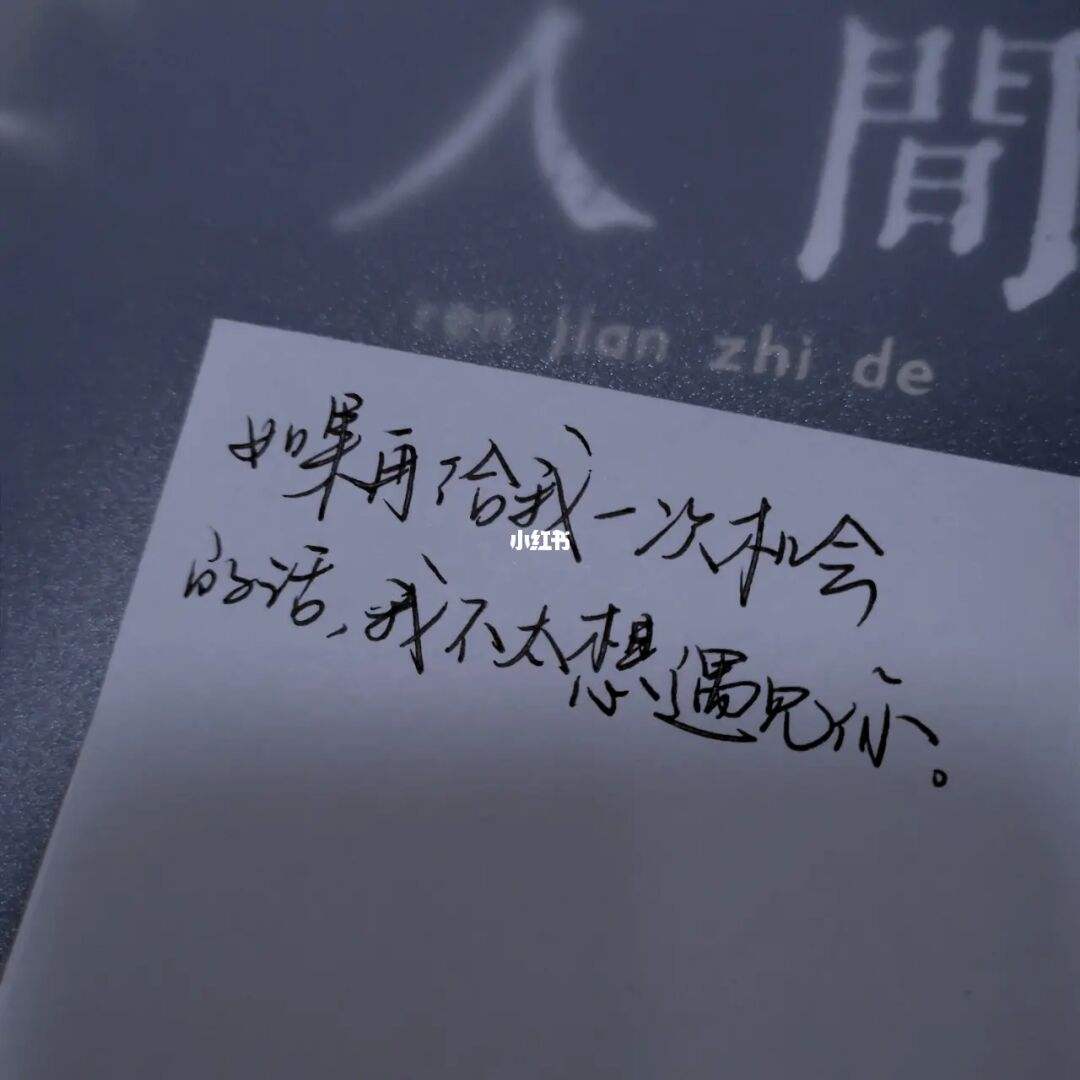 人間
ren jian zhi de
如果再给我一次机会
小红书
的话,我不太想遇见你。